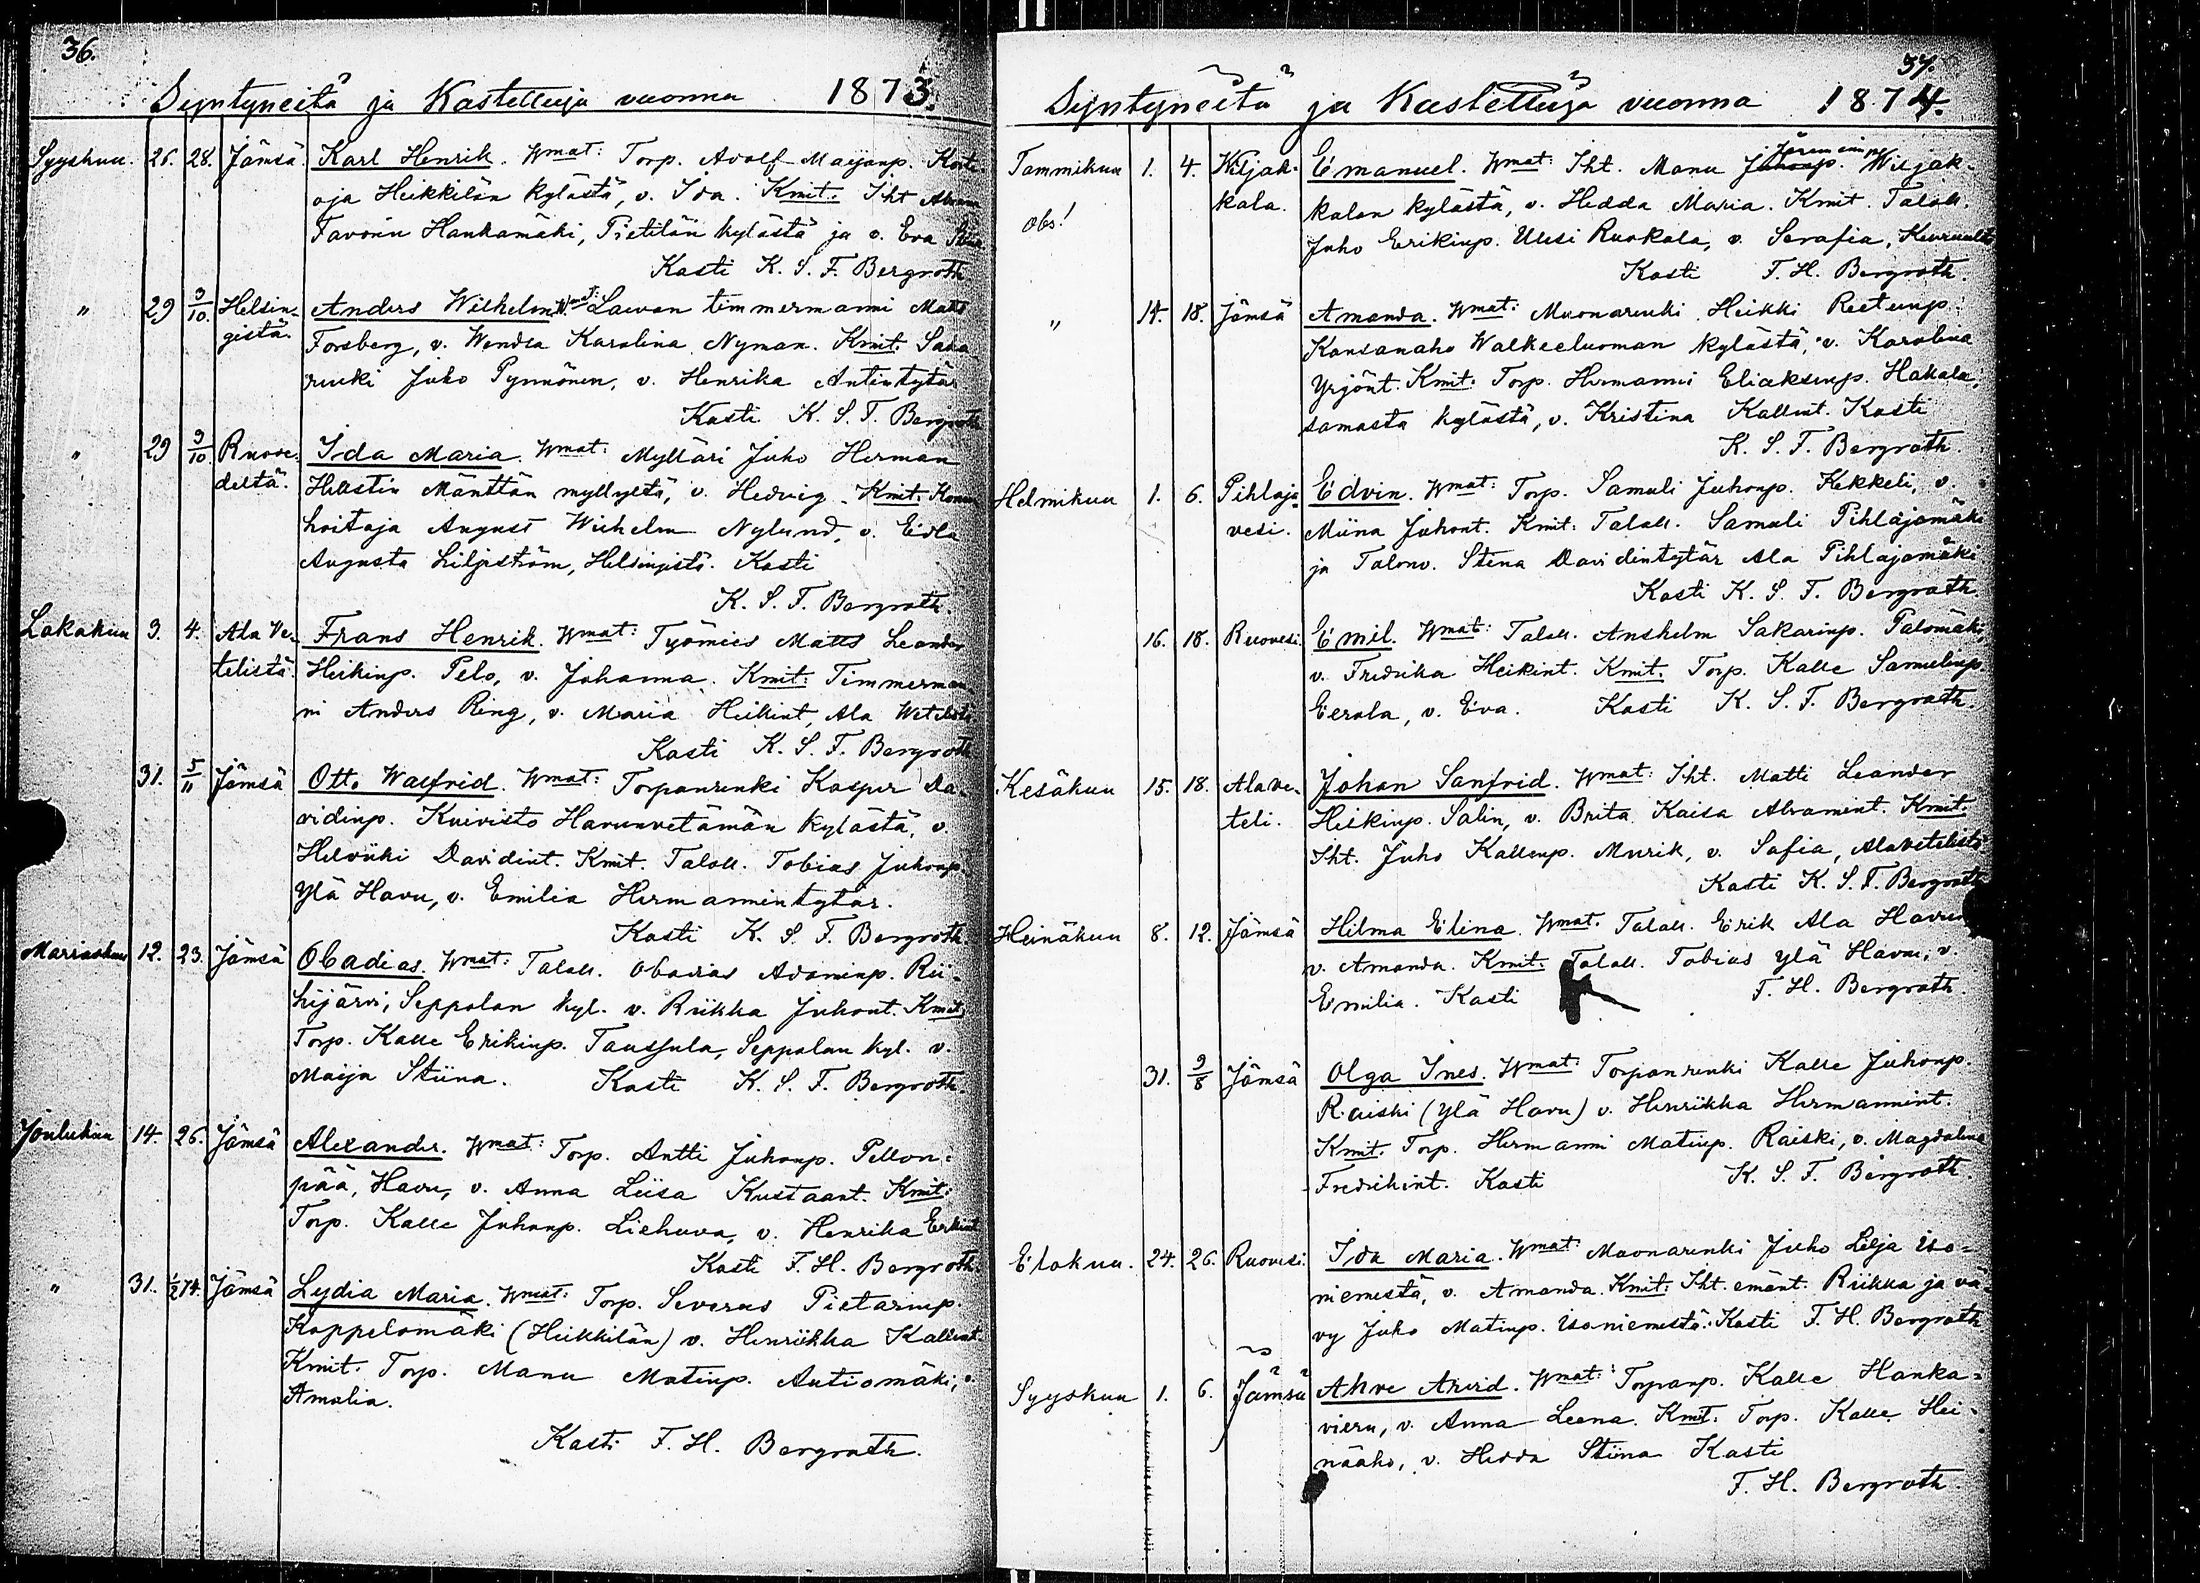 36.
Syntyneitä ja Kastettuja vuonna 1873.
Syyskuu. 26. 28. Jämsä. Karl Henrik. Wmat: Torp. Adolf Maijanp.
oja Heikkilän kylästä, v. Ida. Kmit. Iht
Favorin Hankamäki, Pietilän kylästä ja v. Eva
Kasti K. S. F. Bergroth
" 29 3/10. Helsin- Anders Wilhelm. Wmat: Laivan timmermanni Mats
gistä. Forsberg, v. Wendla Karolina Nyman. Kmit. Saha
renki Juho Pynnönen, v. Henrika Antintytär
Kasti K. S. F. Bergroth
" 29 3/10. Ruove- Ida Maria. Wmat: Mylläri Juho Herman
deltä. Hellstin Mänttän myllystä, v. Hedvig. Kmit:
hoitaja August Wilhelm Nylund, v. Edla
Augusta Liljeström, Helsingistä. Kasti
K. S. F. Bergroth.
Lokakuu 3. 4. Ala Ve- Frans Henrik. Wmat: Työmies Matts Leander
telistä. Heikinp. Pelo, v. Johanna. Kmit: Timmerman-
ni Anders Ring, v. Maria Heikint, Ala Wetelistä
Kasti K. S. F. Bergroth
31. 5/11 Jämsä Otto Walfrid. Wmat: Torpanrenki Kasper Da-
vidinp. Kuivisto Harunvetämän kylästä, v.
Helviiki Davidint. Kmit. Taloll. Tobias Juhonp.
Ylä Havu, v. Emilia Hermannintytär.
Kasti K. S. F. Bergroth.
Marraskuu 12. 23. Jämsä Obadias. Wmat: Taloll. Obadias Adaminp. Rii-
hijärvi, Seppolan kyl. v. Riikka Juhont. Kmit:
Torp. Kalle Erikinp. Taussula, Seppolan kyl. v.
Maija Stiina. Kasti K. S. F. Bergroth.
Joulukuu 14. 26. Jämsä Alexander. Wmat: Torp. Antti Juhonp. Pellon-
pää, Havu, v. Anna Liisa Kustaant. Kmit:
Torp. Kalle Juhonp. Liehuva, v. Henrika Erkint
Kasti F. H. Bergroth.
" 31. 1/2 74. Jämsä Lydia Maria. Wmat: Torp. Severus Pietarinp.
Koppelomäki (Heikkilän) v. Henriikka Kallent.
Kmit. Torp. Manu Matinp. Autiomäki, v.
Amalia.
Kasti F. H. Bergroth.
37.
Syntyneitä ja Kastettuja vuonna 1874.
Tammikuu 1. 4. Wiljak- Emanuel. Wmat: Iht. Manu Juhonp. Wiljak-
Obs! kala. kalan kylästä, v. Hedda Maria. Kmit. Taloll.
Juho Eerikinp. Uusi Ruokala, v. Serafia, Keuruulta
Kasti F. H. Bergroth.
" 14. 18. Jämsä Amanda. Wmat: Muonarenki Heikki Reetunp.
Kansanaho Walkeeluoman kylästä, v. Karolina
Yrjönt. Kmit: Torp. Hermanni Eliaksenp. Hakala,
samasta kylästä, v. Kristina Kallent. Kasti
K. S. F. Bergroth.
Helmikuu 1. 6. Pihlaja- Edvin. Wmat: Torp. Samuli Juhonp. Kekkeli, v.
vesi. Miina Juhont. Kmit: Taloll. Samuli Pihlajamäki
ja Talonv. Stena Davidintytär Ala Pihlajamäki
Kasti K. S. F. Bergroth.
16. 18. Ruovesi. Emil. Wmat: Taloll. Anshelm Sakarinp. Palomäki,
v. Fredrika Heikint. Kmit. Torp. Kalle Samulinp.
Eerola, v. Eva. Kasti K. S. F. Bergroth.
Kesäkuu 15. 18. Alave- Johan Sanfrid. Wmat: Iht. Matti Leander
teli. Heikinp. Salin, v. Brita Kaisa Abramint. Kmit.
Iht. Juho Kallenp. Murik, v. Safia, Alavetelistä
Kasti K. S. F. Bergroth
Heinäkuu 8. 12. Jämsä Hilma Elina. Wmat. Taloll. Erik Ala Havun
v. Amanda. Kmit: Taloll. Tobias Ylä Havu, v.
Emilia. Kasti F. H. Bergroth.
31. 9/8 Jämsä Olga Ines. Wmat: Torpanrenki Kalle Juhonp.
Raiski (Ylä Havu) v. Henriikka Hermannint.
Kmit. Torp. Hermanni Matinp. Raiski, v. Magdalena
Fredrikint. Kasti K. S. F. Bergroth.
Elokuu. 24. 26. Ruovesi. Ida Maria. Wmat: Muonarenki Juho Lilja Iso-
niemestä, v. Amanda. Kmit: Iht. emänt. Riikka ja vä-
vy Juho Matinp. Isoniemestä. Kasti F. H. Bergroth
Syyskuu 1. 6. Jämsä Ahve Arvid. Wmat: Torpanp. Kalle Hanka-
vieru, v. Anna Leena. Kmit. Torp. Kalle Hei-
nääho, v. Hedda Stiina Kasti
F. H. Bergroth.